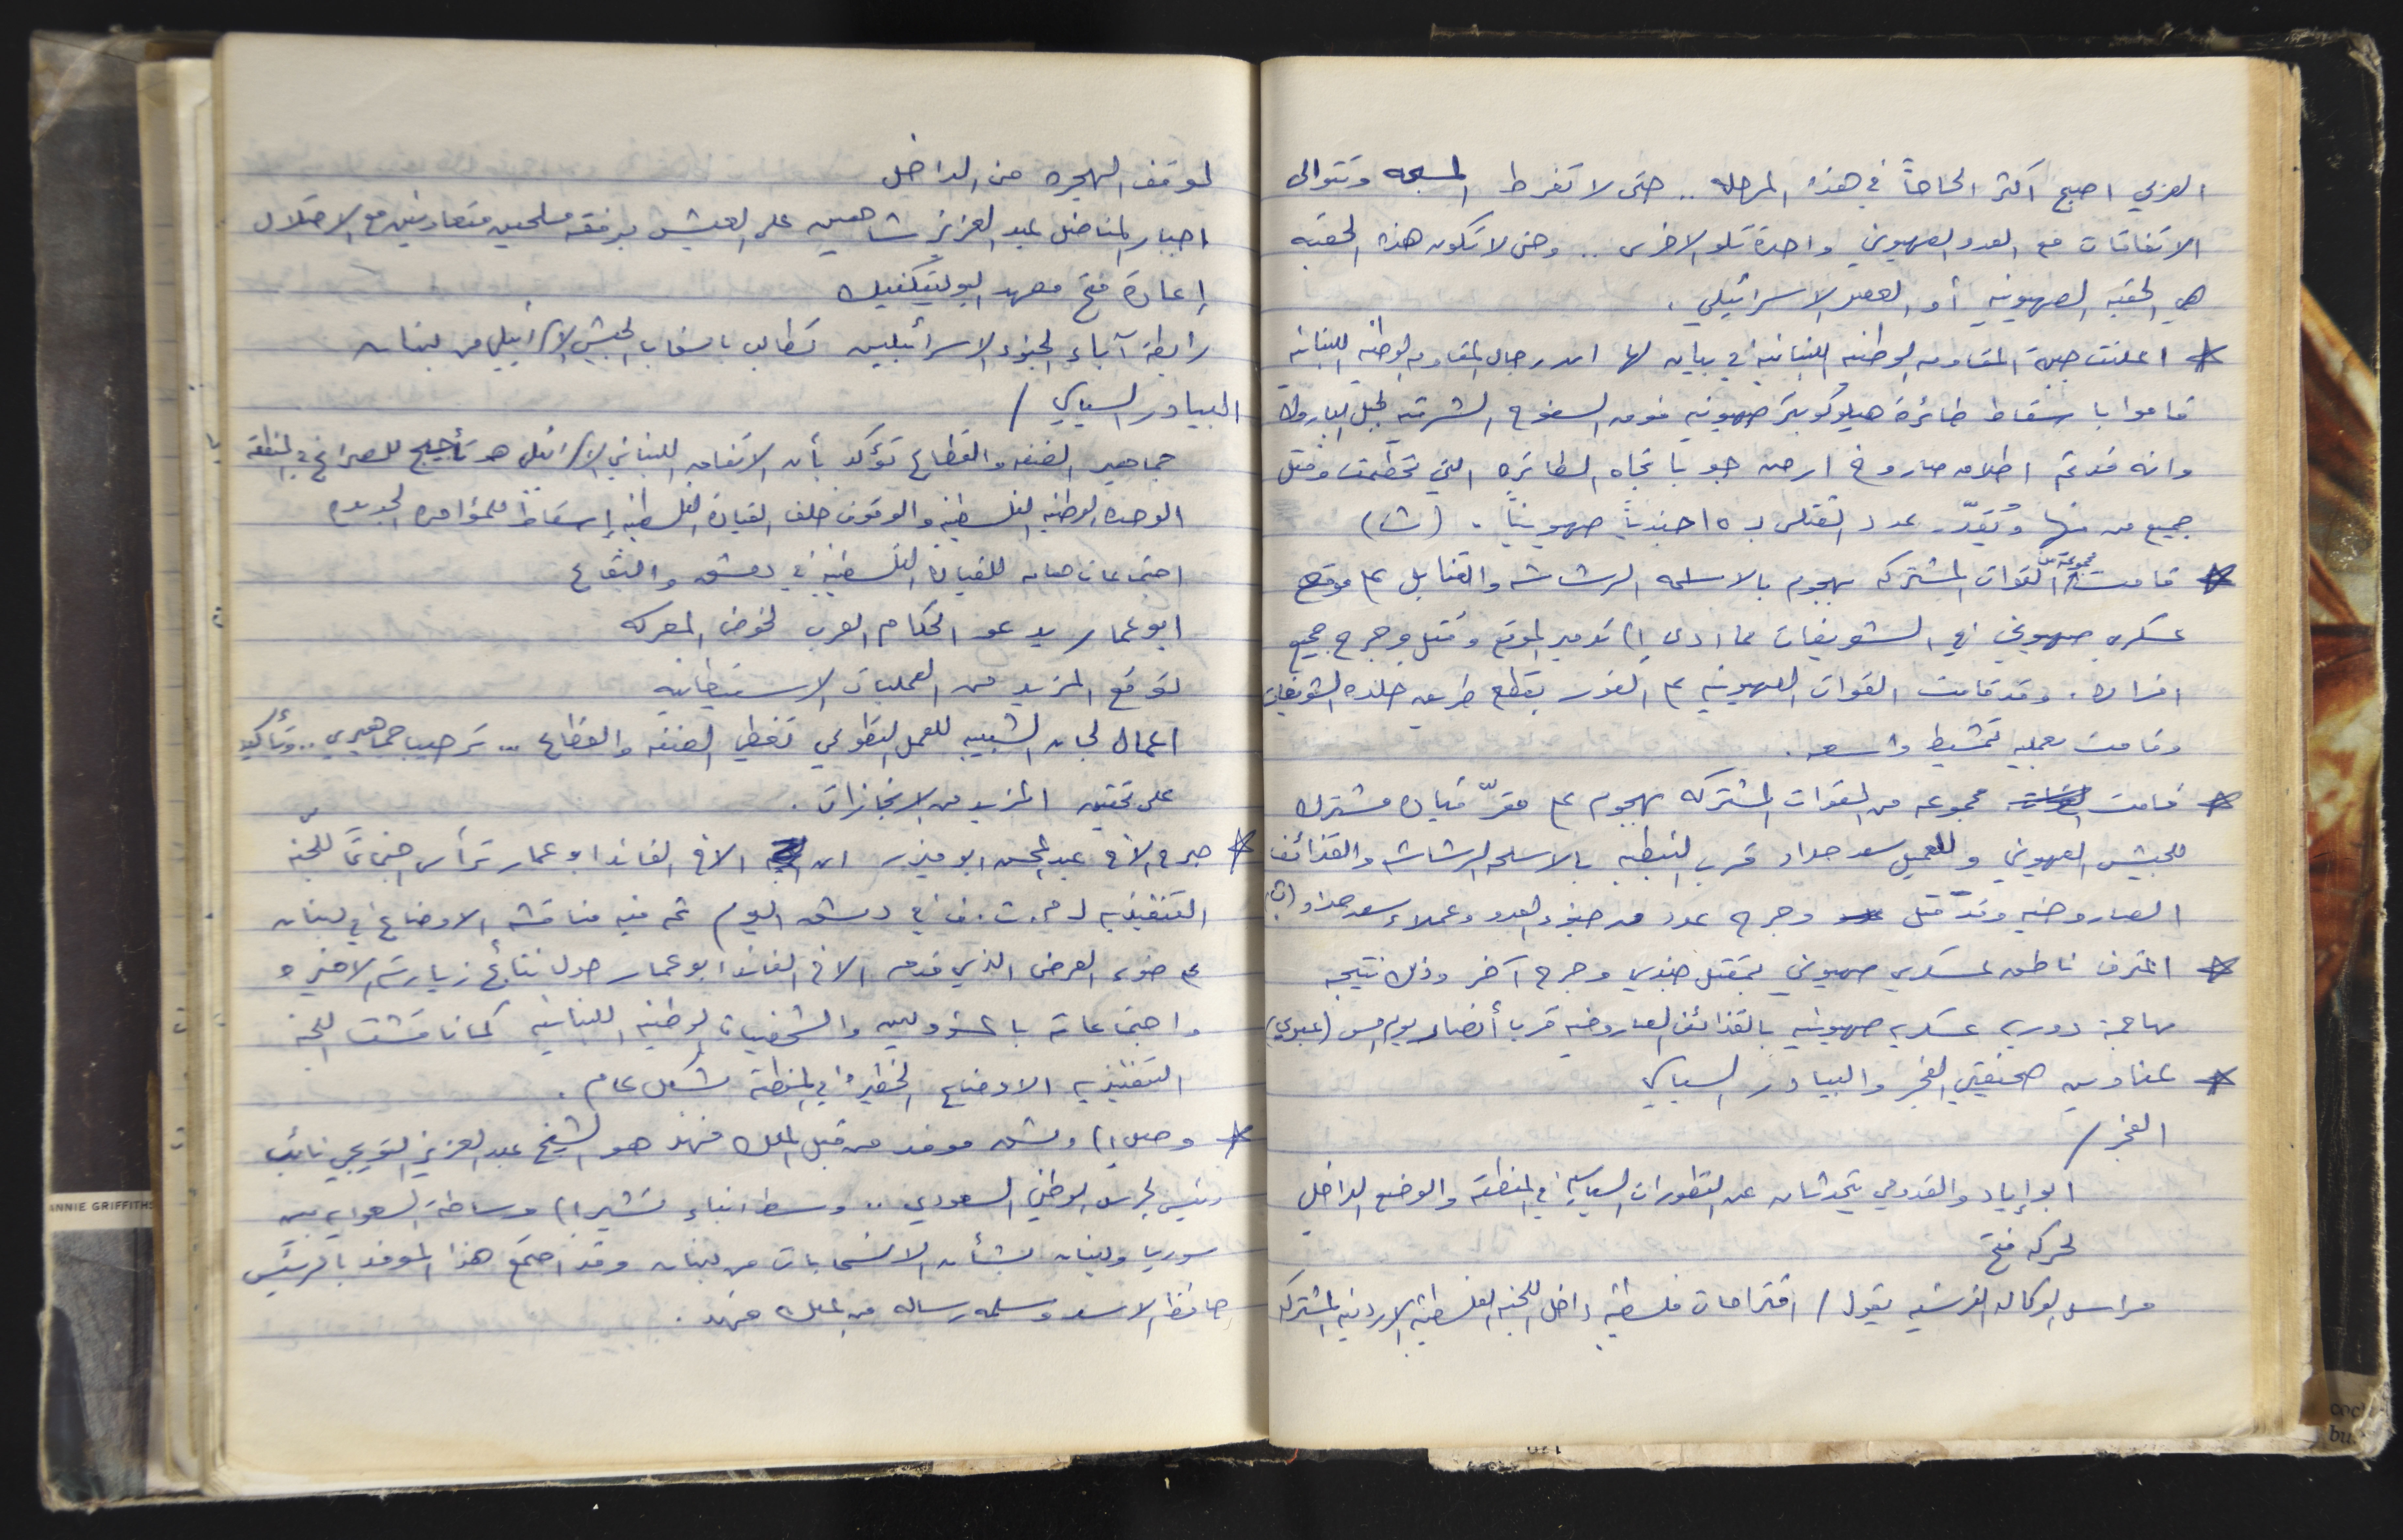 العربي اصبح اكثر الحاحاً في هذه المرحله .. حتى لا تفرط المسبحه وتتوالى
الاتفاقات مع العدو الصهيوني واحدة تلو الاخرى .. وحتى لا تكون هذه الحقبه
هي الحقبه الصهيونيه أو العصر الاسرائيلي .
* اعلنت جبهة المقاومه الوطنيه اللبنانيه في بيان لها ان رجال المقاومه الوطنيه اللبنانيه
قاموا باسقاط طائرة هيلوكوبتر صهيونيه فوق السفوح الشرقيه لجبل الباروك
وانه قد تم اطلاق صاروخ ارض جو باتجاه الطائره التي تحطمت وقتل
جميع من فيها وتُقدّر عدد القتلى بـ ١٥ جندياً صهيونياً . (ش)
* قامت مجموعة من القوات المشتركه بهجوم بالاسلحه الرشاشه والقنابل ع موقع
عسكري صهيوني في الشويفات مما ادى إ) تدمير الموقع وقتل وجرح جميع
افراده . وقد قامت القوات الصهيونيه ع الفور بقطع طريق خلده الشويفات
وقامت بعمليه تمشيط واسعه .
* قامت مجموعه من القوات المشتركه بهجوم ع مقرّ قياده مشترك
للجيش الصهيوني وللعميل سعد حداد قرب النبطيه بالاسلحه الرشاشه والقذائف
الصاروخيه وقد قتل وجرح عدد من جنود العدو وعملاء سعد حداد (ش)
* اعترف ناطق عسكري صهيوني بمقتل جندي وجرح آخر وذلك نتيجه
مهاجمة دوريه عسكريه صهيونيه بالقذائف الصاروخيه قرب أنصار يوم امس (عبري)
* عناوين صحيفتي الفجر والبيادر السياسي
الفجر /
ابو إياد والقدومي يتحدثان عن التطورات السياسيه في المنطقة والوضع الداخلي
لحركه فتح
مراسل الوكاله الفرنسيه يقول / اقتراحات فلسطينيه داخل اللجنه الفلسطينيه الاردنيه المشتركه
لوقف الهجره من الداخل
اجبار المناضل عبد العزيز شاهين على العيش برفقه مسلحين متعاونين مع الاحتلال
إعادة فتح معهد البوليتكنيك
رابطة آباء الجنود الاسرائيليين تطالب بانسحاب الجيش الاسرائيلي من لبنان
البيادر السياسي /
جماهير الضفه والقطاع تؤكد بأن الاتفاق اللبناني الاسرائيلي هو تأجيج للصراع في المنطقة
الوحده الوطنيه الفلسطينيه والوقوف خلف القيادة الفلسطينيه إسقاط للمؤامره الجديده
اجتماعات هامه للقيادة الفلسطينيه في دمشق والبقاع
ابو عمار يدعو الحكام العرب لخوض المعركه
توقع المزيد من العمليات الاستيطانيه
اعمال لجان الشبيبه للعمل التطوعي تغطي الضفه والقطاع ... ترحيب جماهيري .. وتأكيد
على تحقيق المزيد من الانجازات .
* صرح الأخ عبد المحسن ابو ميزر ان الاخ القائد ابو عمار ترأس اجتماعاً للجنه
التنفيذيه لـ م . ت . ف في دمشق اليوم تم فيه مناقشه الاوضاع في لبنان
ع ضوء العرض الذي قدمه الاخ القائد ابو عمار حول نتائج زيارته الاخيره
واجتماعاته بالمسؤولين والشخصيات الوطنيه اللبنانيه كما ناقشت اللجنه
التنفيذيه الاوضاع الخطيره في المنطقة بشكل عام .
* وصل إ) دمشق موفد من قبل الملك فهد هو الشيخ عبد العزيز التويجري نائب
رئيس الحرس الوطني السعودي .. وسط انباء تشير إ) وساطة السعوديه بين
سوريا ولبنان بشأن الانسحابات من لبنان وقد اجتمع هذا الموفد بالرئيس
حافظ الاسد وسلمه رساله من الملك فهد .
ANNIE GRIFFITHS